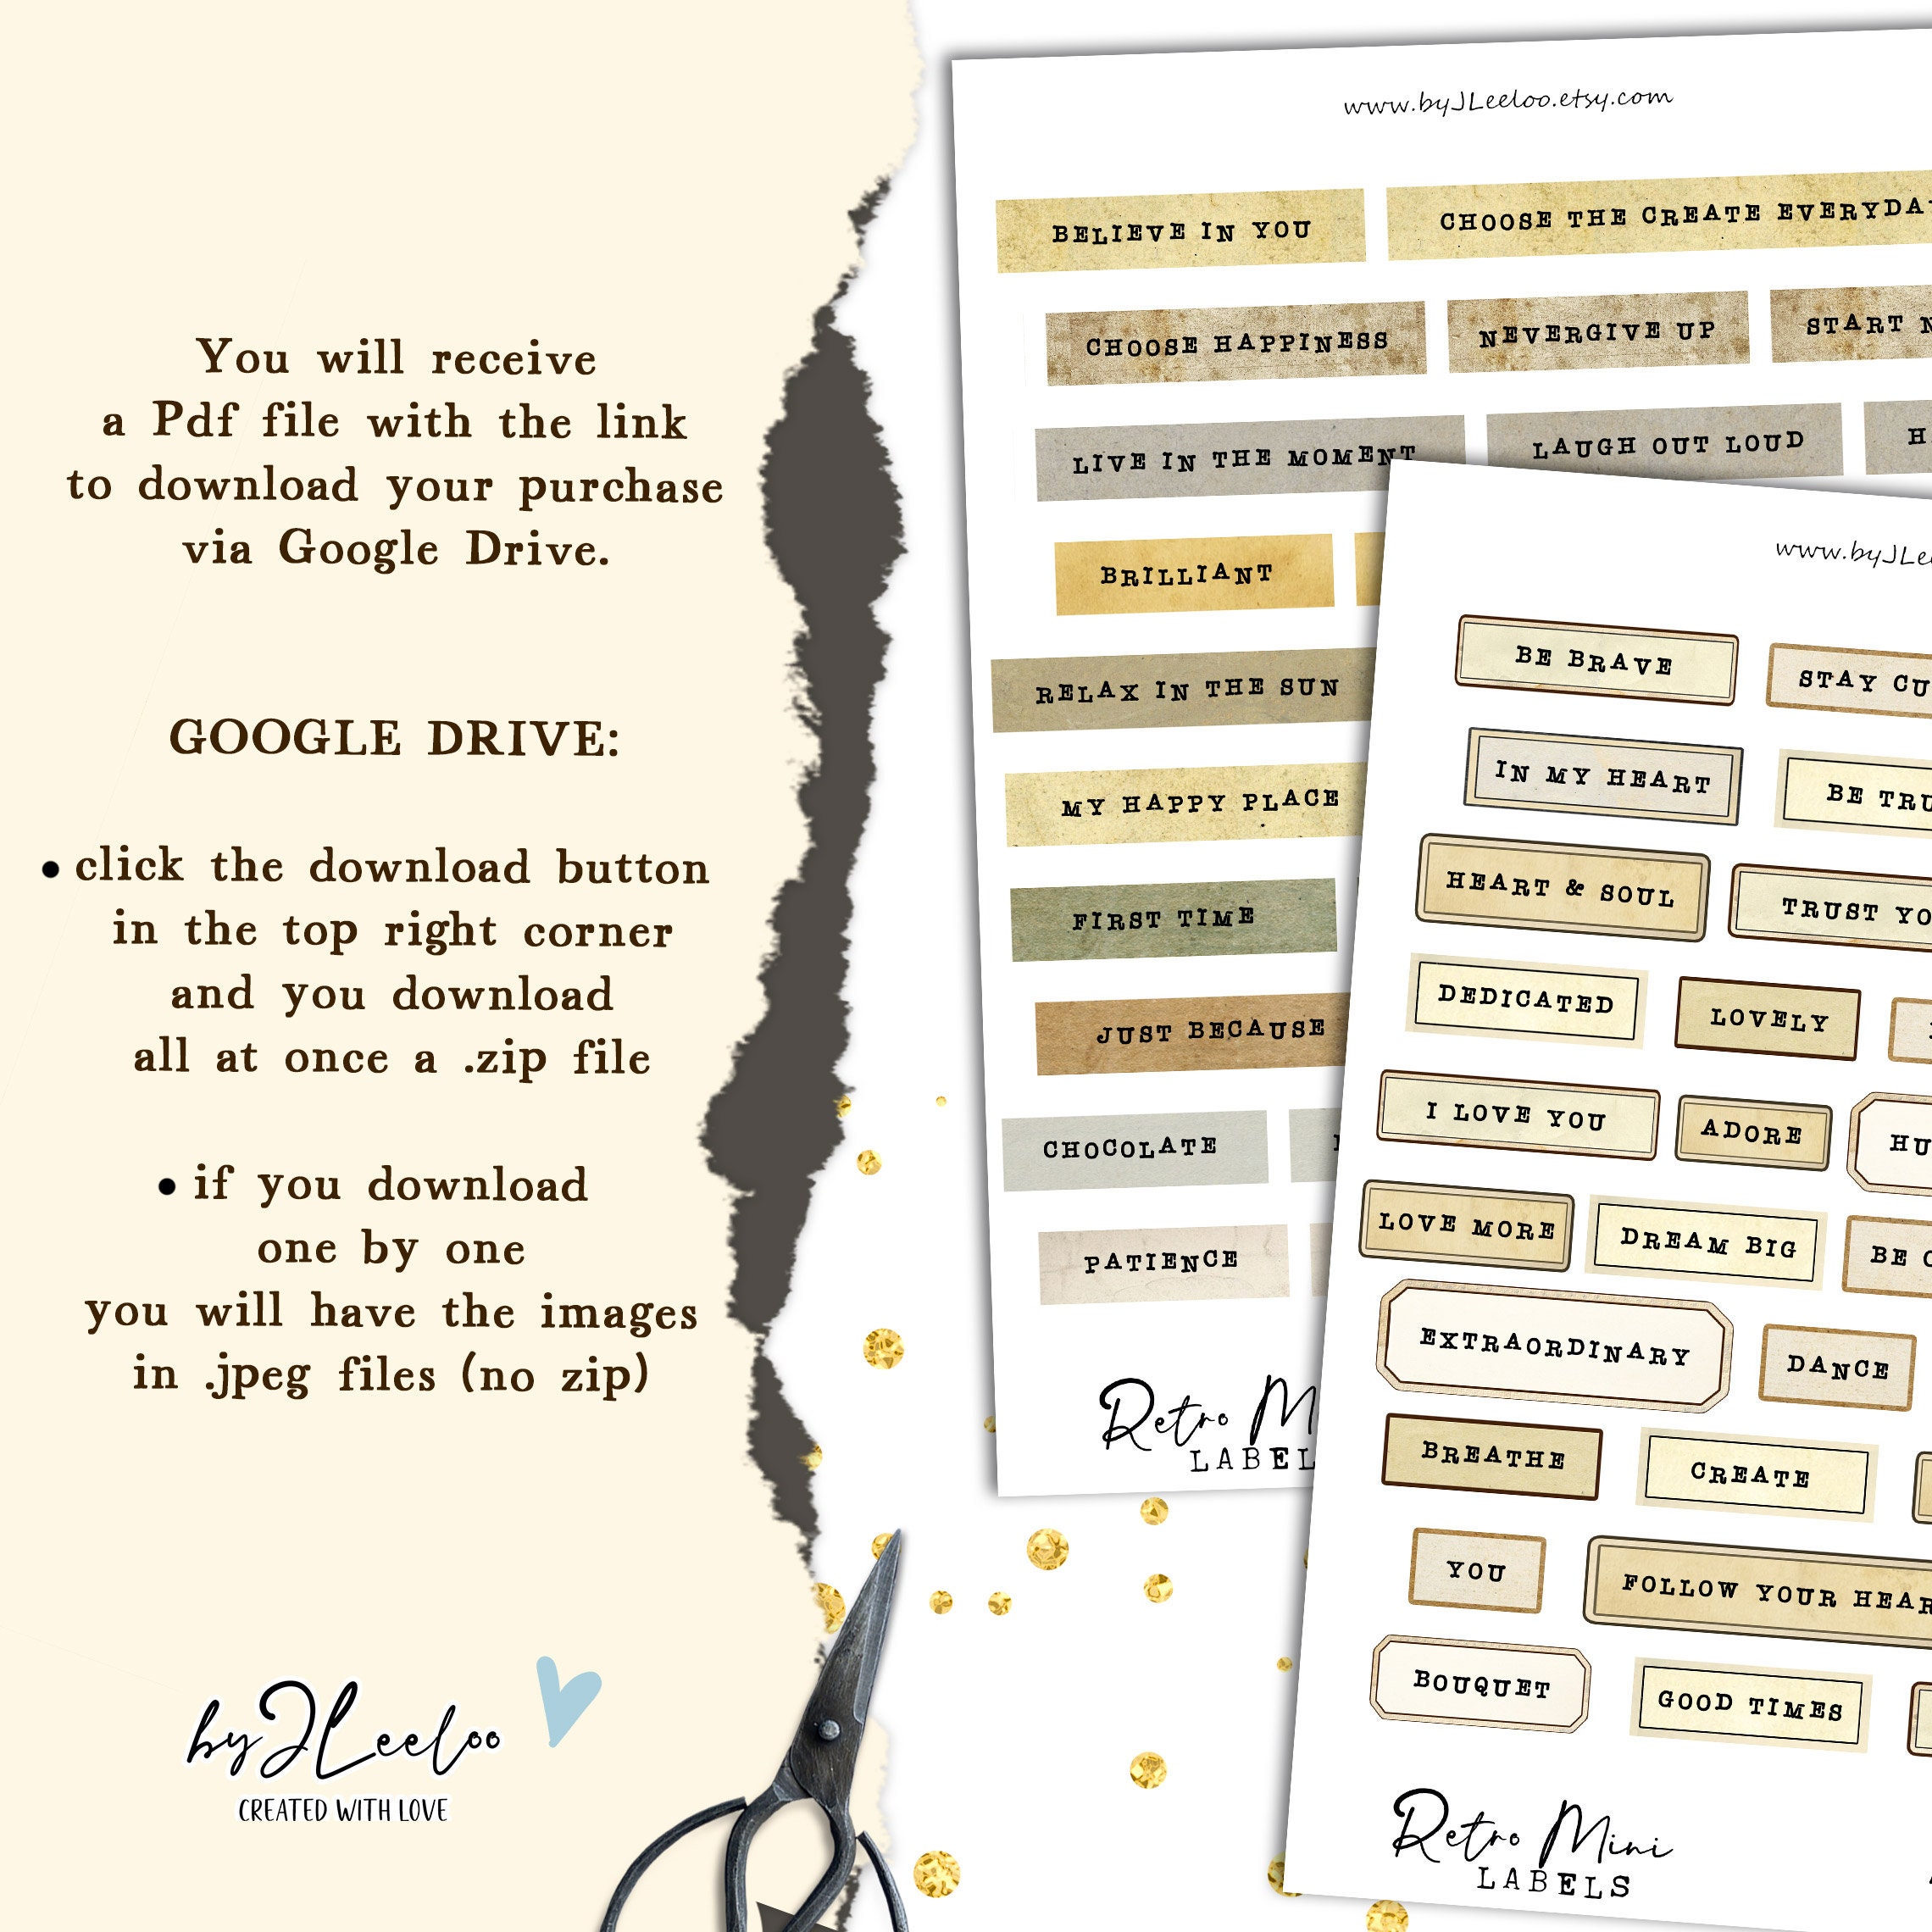 You will receive
a Pdf file with the link
to download your purchase
via Google Drive.
GOOGLE DRIVE:
• click the download button
in the top right corner
and you download
all at once a .zip file
• if you download
one by one
you will have the images
in .jpeg files (no zip)
byJLeeloo
CREATED WITH LOVE
www.byJLeeloo.etsy.com
BELIEVE IN YOU
CHOOSE THE CREATE EVERYDA
CHOOSE HAPPINESS
NEVERGIVE UP
START
LIVE IN THE MOMENT
LAUGH OUT LOUD
H
BRILLIANT
RELAX IN THE SUN
MY HAPPY PLACE
FIRST TIME
JUST BECAUSE
CHOCOLATE
PATIENCE
Retro M
LABEL
www.byJLe
BE BRAVE
STAY CU
IN MY HEART
BE TRU
HEART & SOUL
TRUST YO
DEDICATED
LOVELY
I LOVE YOU
ADORE
HU
LOVE MORE
DREAM BIG
BE
EXTRAORDINARY
DANCE
BREATHE
CREATE
YOU
FOLLOW YOUR HEAR
BOUQUET
GOOD TIMES
Retro Mini
LABELS